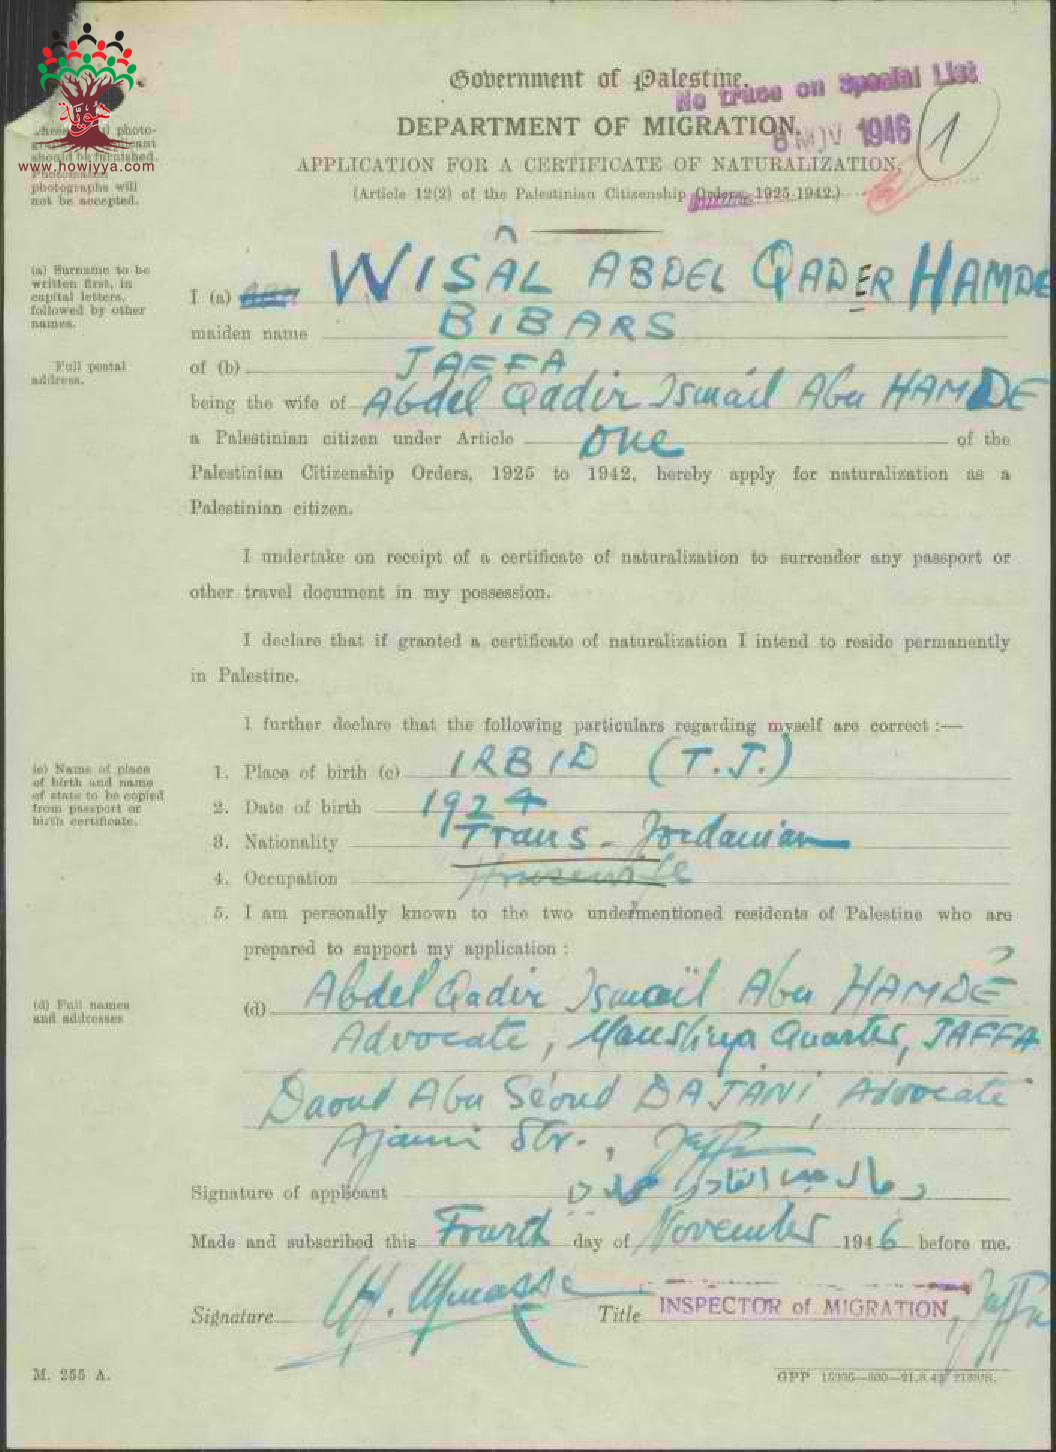 هوية
www.howiyya.com
photo-
should be furnished.
photographs will
not be accepted.
Government of Palestine.
No trace on Special List
8 NOV 1946
1
DEPARTMENT OF MIGRATION.
APPLICATION FOR A CERTIFICATE OF NATURALIZATION,
(Article 12(2) of the Palestinian Citizenship Orders, 1925-1942.)
(a) Surname to be
written first, in
capital letters,
followed by other
names.
I (a) WISÂL ABDEL QADER HAMDE
maiden name BIBARS
Full postal
address.
of (b) JAFFA
being the wife of Abdel Qadir Ismail Abu HAMDE
a Palestinian citizen under Article one of the
Palestinian Citizenship Orders, 1925 to 1942, hereby apply for naturalization as a
Palestinian citizen.
I undertake on receipt of a certificate of naturalization to surrender any passport or
other travel document in my possession.
I declare that if granted a certificate of naturalization I intend to reside permanently
in Palestine.
I further declare that the following particulars regarding myself are correct :—
(c) Name of place
of birth and name
of state to be copied
from passport or
birth certificate.
1. Place of birth (c) IRBID (T.J.)
2. Date of birth 1924
3. Nationality Trans-Jordanian
4. Occupation Housewife
5. I am personally known to the two undermentioned residents of Palestine who are
prepared to support my application :
(d) Full names
and addresses
(d) Abdel Qadir Ismaïl Abu HAMDE
Advocate, Manshiya Quarter, JAFFA
Daoud Abu Séoud DAJANI, Advocate
Ajami Str., Jaffa
Signature of applicant وصال عبد القادر حمده
Made and subscribed this Fourth day of November 1946 before me.
Signature Title INSPECTOR of MIGRATION, Jaffa
M. 255 A.
GPP